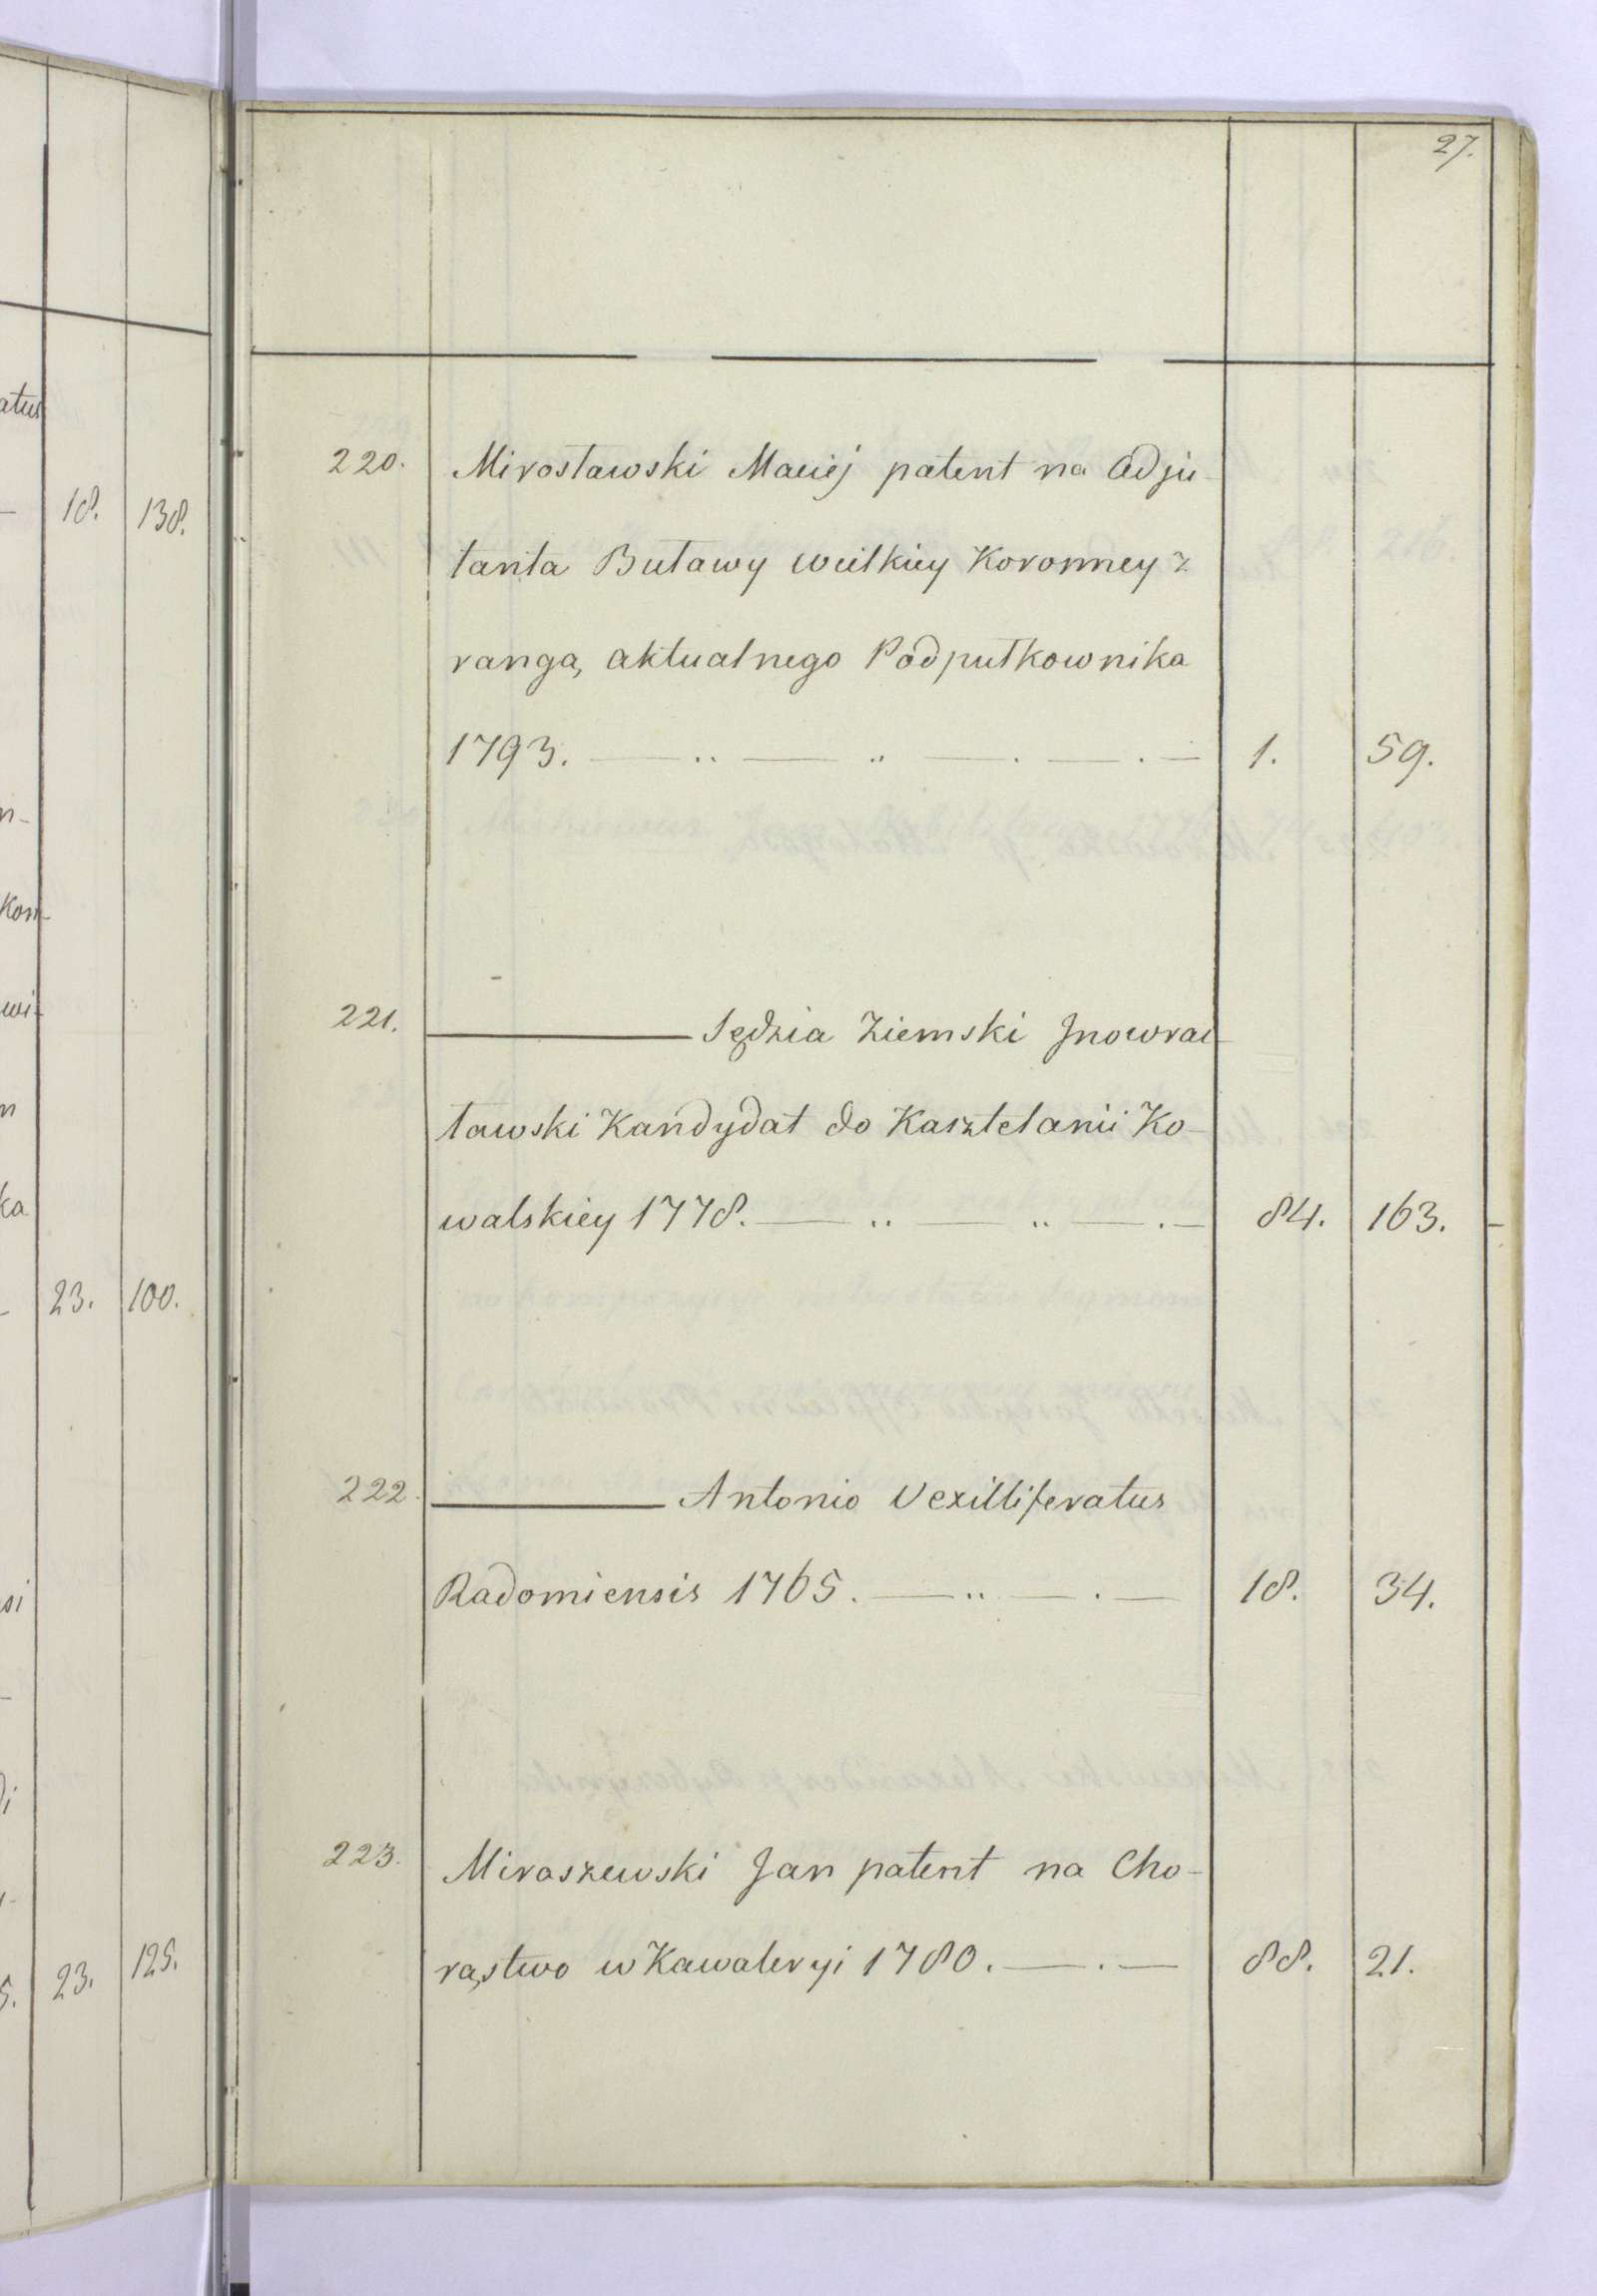 27.
220. Mirosławski Maciej patent na Adju-
tanta Buławy Wielkiey Koronney z
rangą aktualnego Podpułkownika
1793. 1. 59.
221. ——— Sędzia Ziemski Jnowrac-
ławski Kandydat do Kasztelanii Ko-
walskiey 1778. 84. 163.
222. ——— Antonio Vexilliferatus
Radomiensis 1765. 18. 34.
223. Miraszewski Jan patent na Cho-
rąstwo w Kawaleryi 1780. 88. 21.
atus
18. 138.
n-
Kon-
wi-
n
ka
23. 100.
si
23. 125.